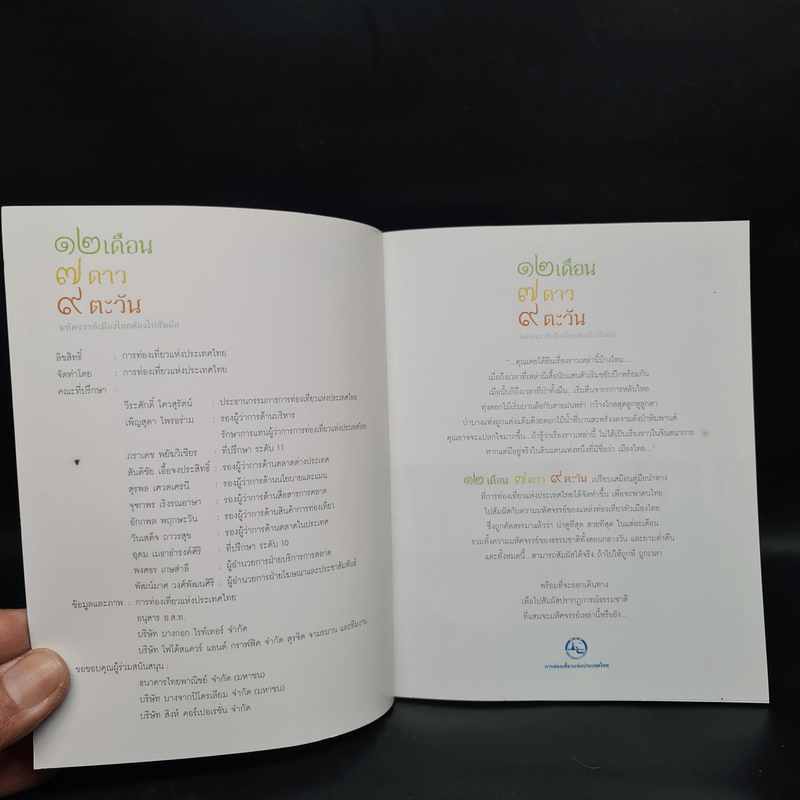 ๑๒ เดือน
๗ ดาว
๙ ตะวัน
มหัศจรรย์เมืองไทยต้องไปสัมผัส
ลิขสิทธิ์ : การท่องเที่ยวแห่งประเทศไทย
จัดทำโดย : การท่องเที่ยวแห่งประเทศไทย
คณะที่ปรึกษา :
วีระศักดิ์ โควสุรัตน์ : ประธานกรรมการการท่องเที่ยวแห่งประเทศไทย
เพ็ญสุดา ไพรอร่าม : รองผู้ว่าการด้านบริหาร
รักษาการแทนผู้ว่าการการท่องเที่ยวแห่งประเทศไทย
ภราเดช พยัฆวิเชียร : ที่ปรึกษา ระดับ 11
สันติชัย เอื้อจงประสิทธิ์ : รองผู้ว่าการด้านตลาดต่างประเทศ
สุรพล เศวตเศรนี : รองผู้ว่าการด้านนโยบายและแผน
จุฑาพร เริงรณอาษา : รองผู้ว่าการด้านสื่อสารการตลาด
อักกพล พฤกษะวัน : รองผู้ว่าการด้านสินค้าการท่องเที่ยว
วันเสด็จ ถาวรสุข : รองผู้ว่าการด้านตลาดในประเทศ
อุดม เมธาธำรงค์ศิริ : ที่ปรึกษา ระดับ 10
พงศธร เกษสำลี : ผู้อำนวยการฝ่ายบริการการตลาด
พัฒน์มาศ วงศ์พัฒนศิริ : ผู้อำนวยการฝ่ายโฆษณาและประชาสัมพันธ์
ข้อมูลและภาพ : การท่องเที่ยวแห่งประเทศไทย
อนุสาร อ.ส.ท.
บริษัท บางกอก ไรท์เทอร์ จำกัด
บริษัท โฟโต้สแควร์ แอนด์ กราฟฟิค จำกัด สุรจิต จามรมาน และทีมงาน
ขอขอบคุณผู้ร่วมสนับสนุน :
ธนาคารไทยพาณิชย์ จำกัด (มหาชน)
บริษัท บางจากปิโตรเลียม จำกัด (มหาชน)
บริษัท สิงห์ คอร์เปอเรชั่น จำกัด
๑๒ เดือน
๗ ดาว
๙ ตะวัน
มหัศจรรย์เมืองไทยต้องไปสัมผัส
"...คุณเคยได้ยินเรื่องราวเหล่านี้บ้างไหม...
เมื่อถึงเวลาที่เหล่าผีเสื้อนับแสนตัวเริ่มขยับปีกพร้อมกัน
เมื่อนั้นก็ถึงเวลาที่ป่าทั้งผืน...เริ่มตื่นจากการหลับใหล
ทุ่งดอกไม้เริ่มบานล้อกับสายฝนพรำ กว้างไกลสุดลูกหูลูกตา
ป่าบางแห่งถูกแต่งแต้มด้วยดอกไม้น้ำที่บานสะพรั่งงดงามดั่งป่าหิมพานต์
คุณอาจจะแปลกใจมากขึ้น...ถ้ารู้ว่าเรื่องราวเหล่านี้ ไม่ได้เป็นเรื่องราวในจินตนาการ
หากแต่มีอยู่จริงในดินแดนแห่งหนึ่งที่มีชื่อว่า เมืองไทย..."
๑๒ เดือน ๗ ดาว ๙ ตะวัน เปรียบเสมือนคู่มือนำทาง
ที่การท่องเที่ยวแห่งประเทศไทยได้จัดทำขึ้น เพื่อจะพาคนไทย
ไปสัมผัสกับความมหัศจรรย์ของแหล่งท่องเที่ยวทั่วเมืองไทย
ซึ่งถูกคัดสรรมาแล้วว่า น่าดูที่สุด สวยที่สุด ในแต่ละเดือน
รวมทั้งความมหัศจรรย์ของธรรมชาติทั้งตอนกลางวัน และยามค่ำคืน
และทั้งหมดนี้...สามารถสัมผัสได้จริง ถ้าไปให้ถูกที่ ถูกเวลา
พร้อมที่จะออกเดินทาง
เพื่อไปสัมผัสปรากฏการณ์ธรรมชาติ
ที่แสนจะมหัศจรรย์เหล่านี้หรือยัง...
การท่องเที่ยวแห่งประเทศไทย